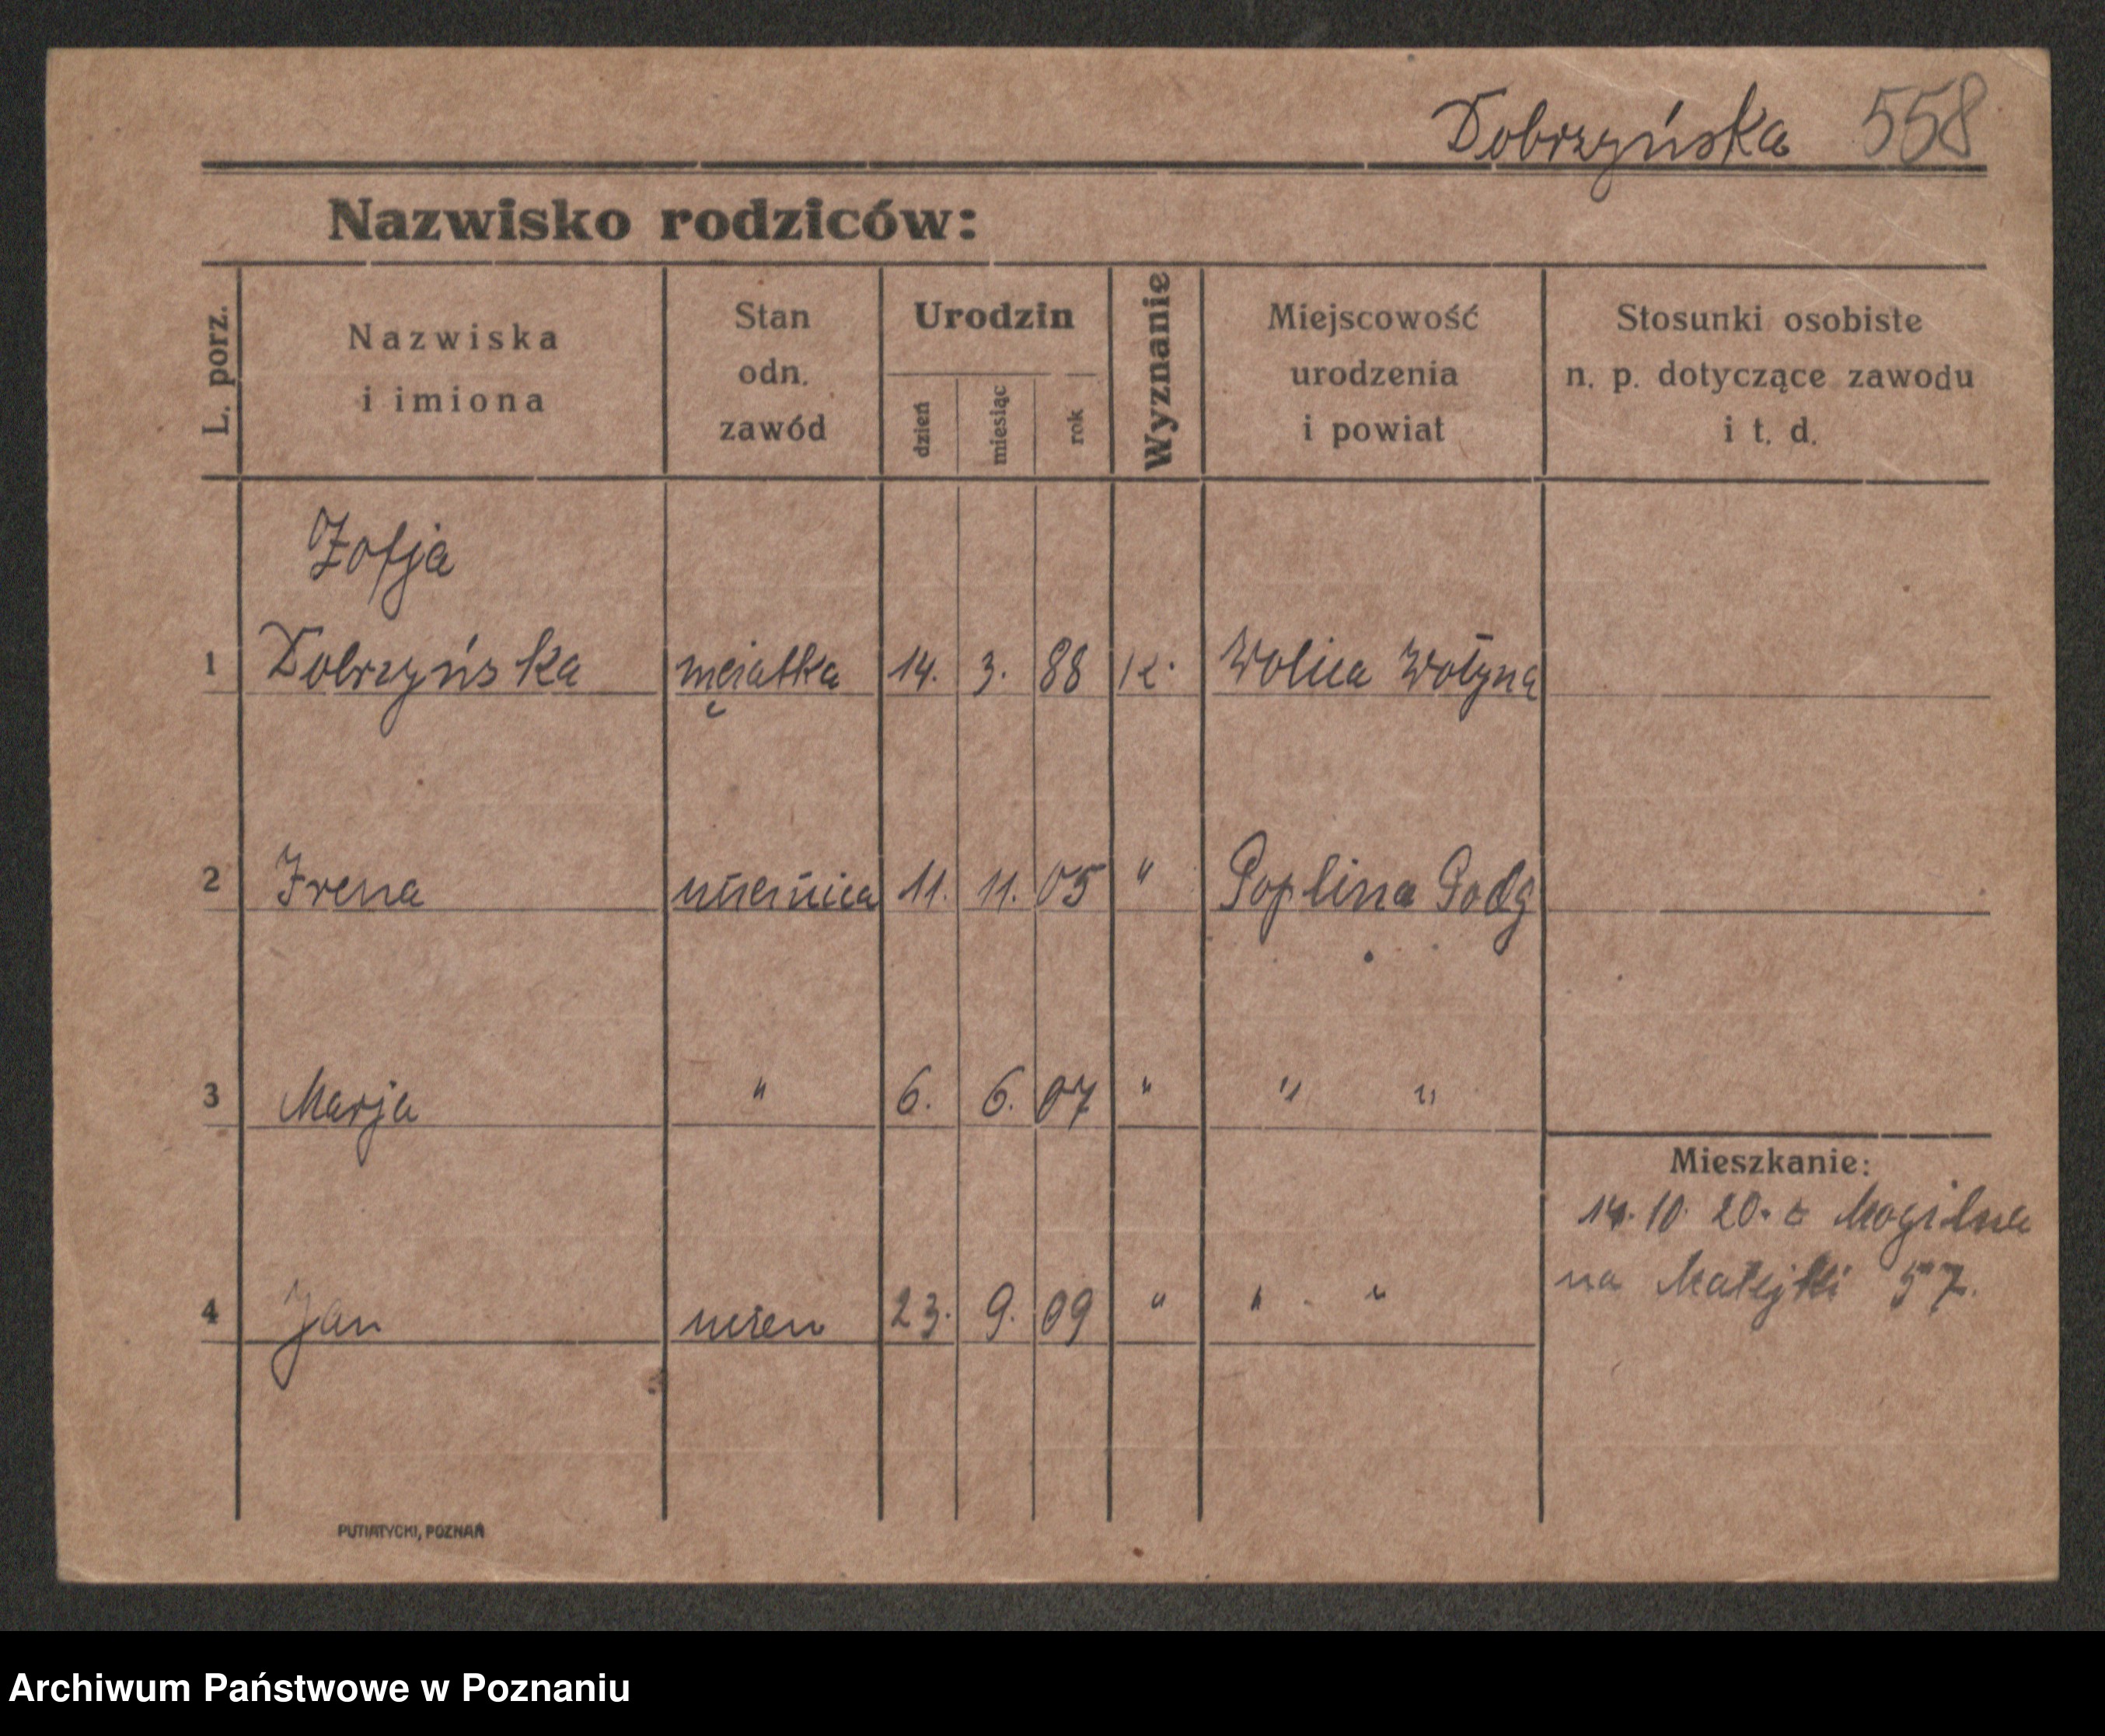 Dobrzyńska 558
Nazwisko rodziców:
L. porz.
Nazwiska
i imiona
Stan
odn.
zawód
Urodzin
dzień
miesiąc
rok
Wyznanie
Miejscowość
urodzenia
i powiat
Stosunki osobiste
n. p. dotyczące zawodu
i t. d.
Zofja
1 Dobrzyńska mężatka 14. 3. 88 K. Wolica Wołyną
2 Irena uczenica 11. 11. 05 " Poplina Podg
3 Marja " 6. 6. 07 " " "
Mieszkanie:
14. 10. 20. z Mogilna
na Matejki 57.
4 Jan uczen 23. 9. 09 " " "
PUTIATYCKI, POZNAŃ
Archiwum Państwowe w Poznaniu